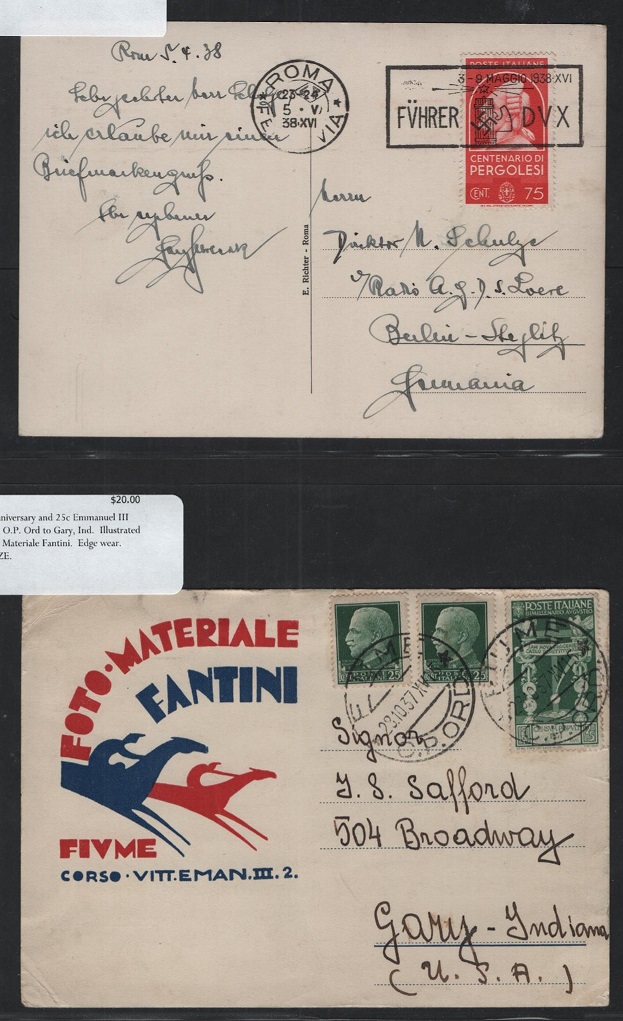 Rom 5.4.38
ich erlaube mir einen
Briefmarkengruß.
Ihr ergebener
ROMA
23-24
5 · V
38·XVI
FERROVIA
POSTE ITALIANE
3-9 MAGGIO 1938·XVI
FÜHRER DVX
CENTENARIO DI
PERGOLESI
CENT. 75
E. Richter - Roma
Herrn
Direktor M. Schulze
Berlin-Steglitz
Germania
$20.00
niversary and 25c Emmanuel III
O.P. Ord to Gary, Ind. Illustrated
Materiale Fantini. Edge wear.
ZE.
FOTO·MATERIALE
FANTINI
FIVME
CORSO·VITT.EMAN.III.2.
25
25
POSTE ITALIANE
FIUME
28.10.37
O.P. ORD
FIUME
Signor
J. S. Safford
504 Broadway
Gary - Indiana
(U. S. A.)